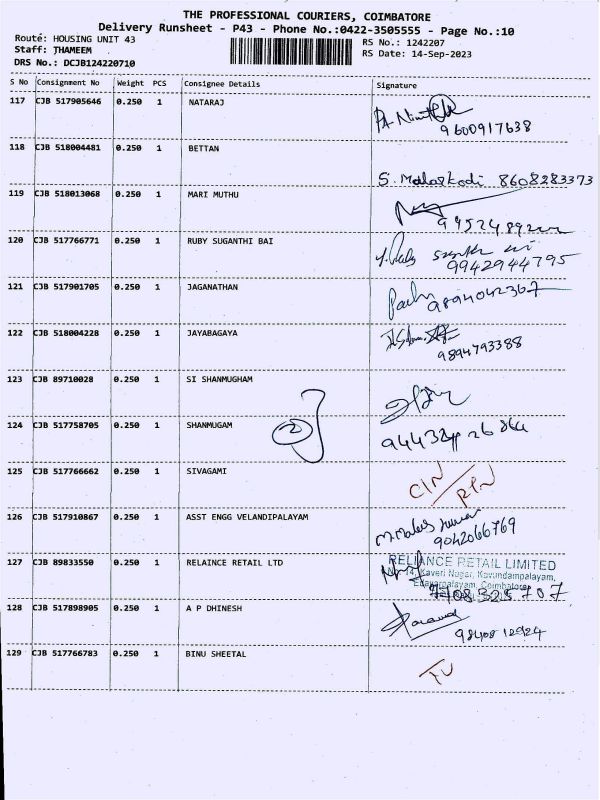 THE PROFESSIONAL COURIERS, COIMBATORE
Delivery Runsheet - P43 - Phone No.:0422-3505555 - Page No.:10
Route: HOUSING UNIT 43
RS No.: 1242207
Staff: THAMEEM
RS Date: 14-Sep-2023
DRS No.: DCJB124220710
S No Consignment No Weight PCS Consignee Details Signature
117 CJB 517905646 0.250 1 NATARAJ
9600917638
118 CJB 518004481 0.250 1 BETTAN
S. Malarkodi 8608283373
119 CJB 518013068 0.250 1 MARI MUTHU
120 CJB 517766771 0.250 1 RUBY SUGANTHI BAI
9942944795
121 CJB 517901705 1 JAGANATHAN
9894042367
122 CJB 518004228 0.250 1 JAYABAGAYA
9894793388
123 CJB 89710028 0.250 1 SI SHANMUGHAM
124 CJB 517758705 0.250 1 SHANMUGAM
2
125 CJB 517766662 0.250 1 SIVAGAMI
126 CJB 517910867 0.250 1 ASST ENGG VELANDIPALAYAM
9042066769
127 CJB 89833550 0.250 1 RELAINCE RETAIL LTD
RELIANCE RETAIL LIMITED
Kaveri Nagar, Kavundampalayam,
Coimbatore
128 CJB 517898905 0.250 1 A P DHINESH
129 CJB 517766783 0.250 1 BINU SHEETAL